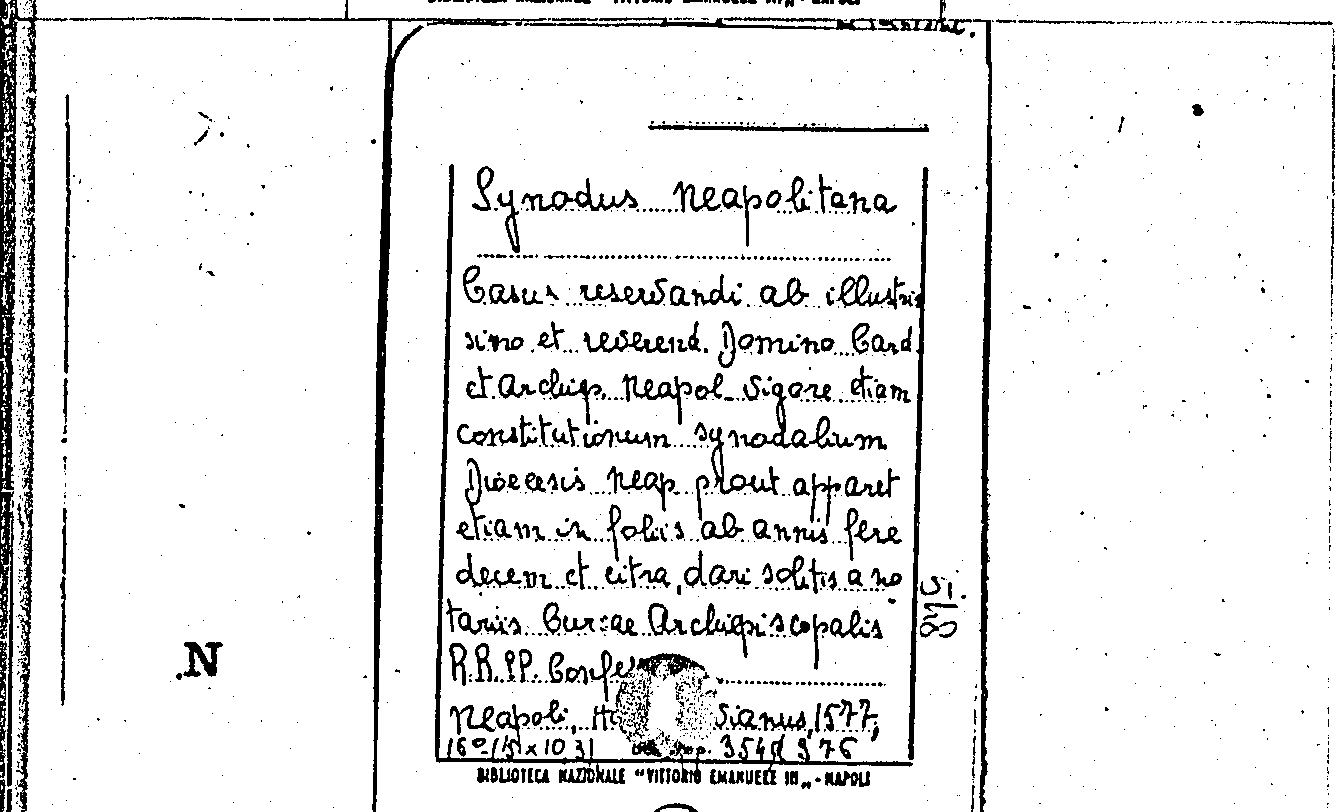 BIBLIOTECA NAZIONALE "VITTORIO EMANUELE III" - NAPOLI
Synodus Neapolitana
Casus reservandi ab illustris
simo et reverend. Domino Card
et Archiep. Neapol. vigore etiam
constitutionum synodalium
Dioecesis neap prout apparet
etiam in foliis ab annis fere
decem et citra, dari solitis a no
tariis Curiae Archiepiscopalis
R.R.PP. Confe
Neapoli, sianus, 1577,
16°
BIBLIOTECA NAZIONALE "VITTORIO EMANUELE III" - NAPOLI
N